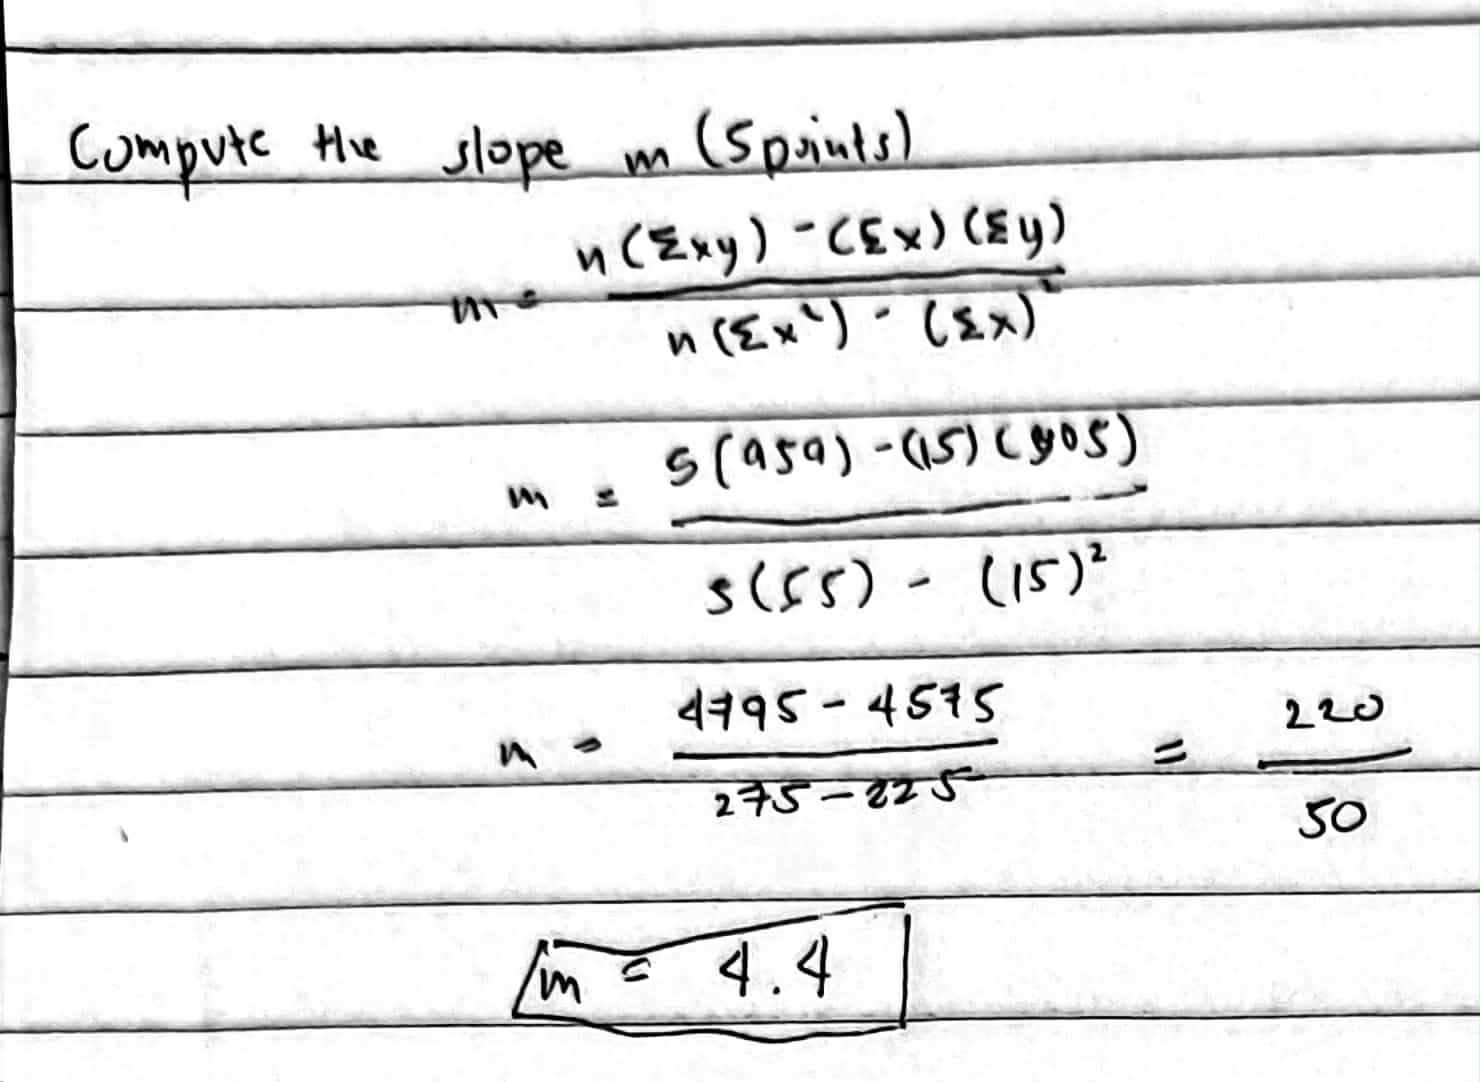 Compute the slope m (5 points)
m = n(Σxy) - (Σx)(Σy) / n(Σx²) - (Σx)²
m = 5(959) - (15)(305) / 5(55) - (15)²
m = 4795 - 4575 / 275 - 225 = 220 / 50
m = 4.4